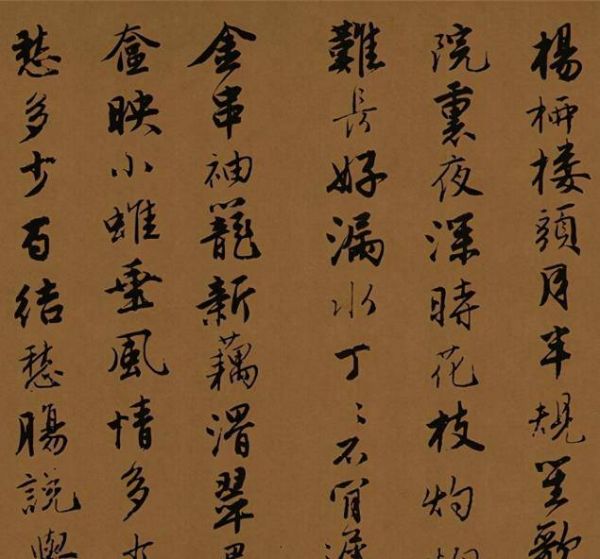 楊柳樓頭月半規笙歌
院裏夜深時花枝灼
難長好漏水丁〻不肯
金串袖籠新藕滑翠
奩映小蛾垂風情多少
愁多少百結愁腸說與